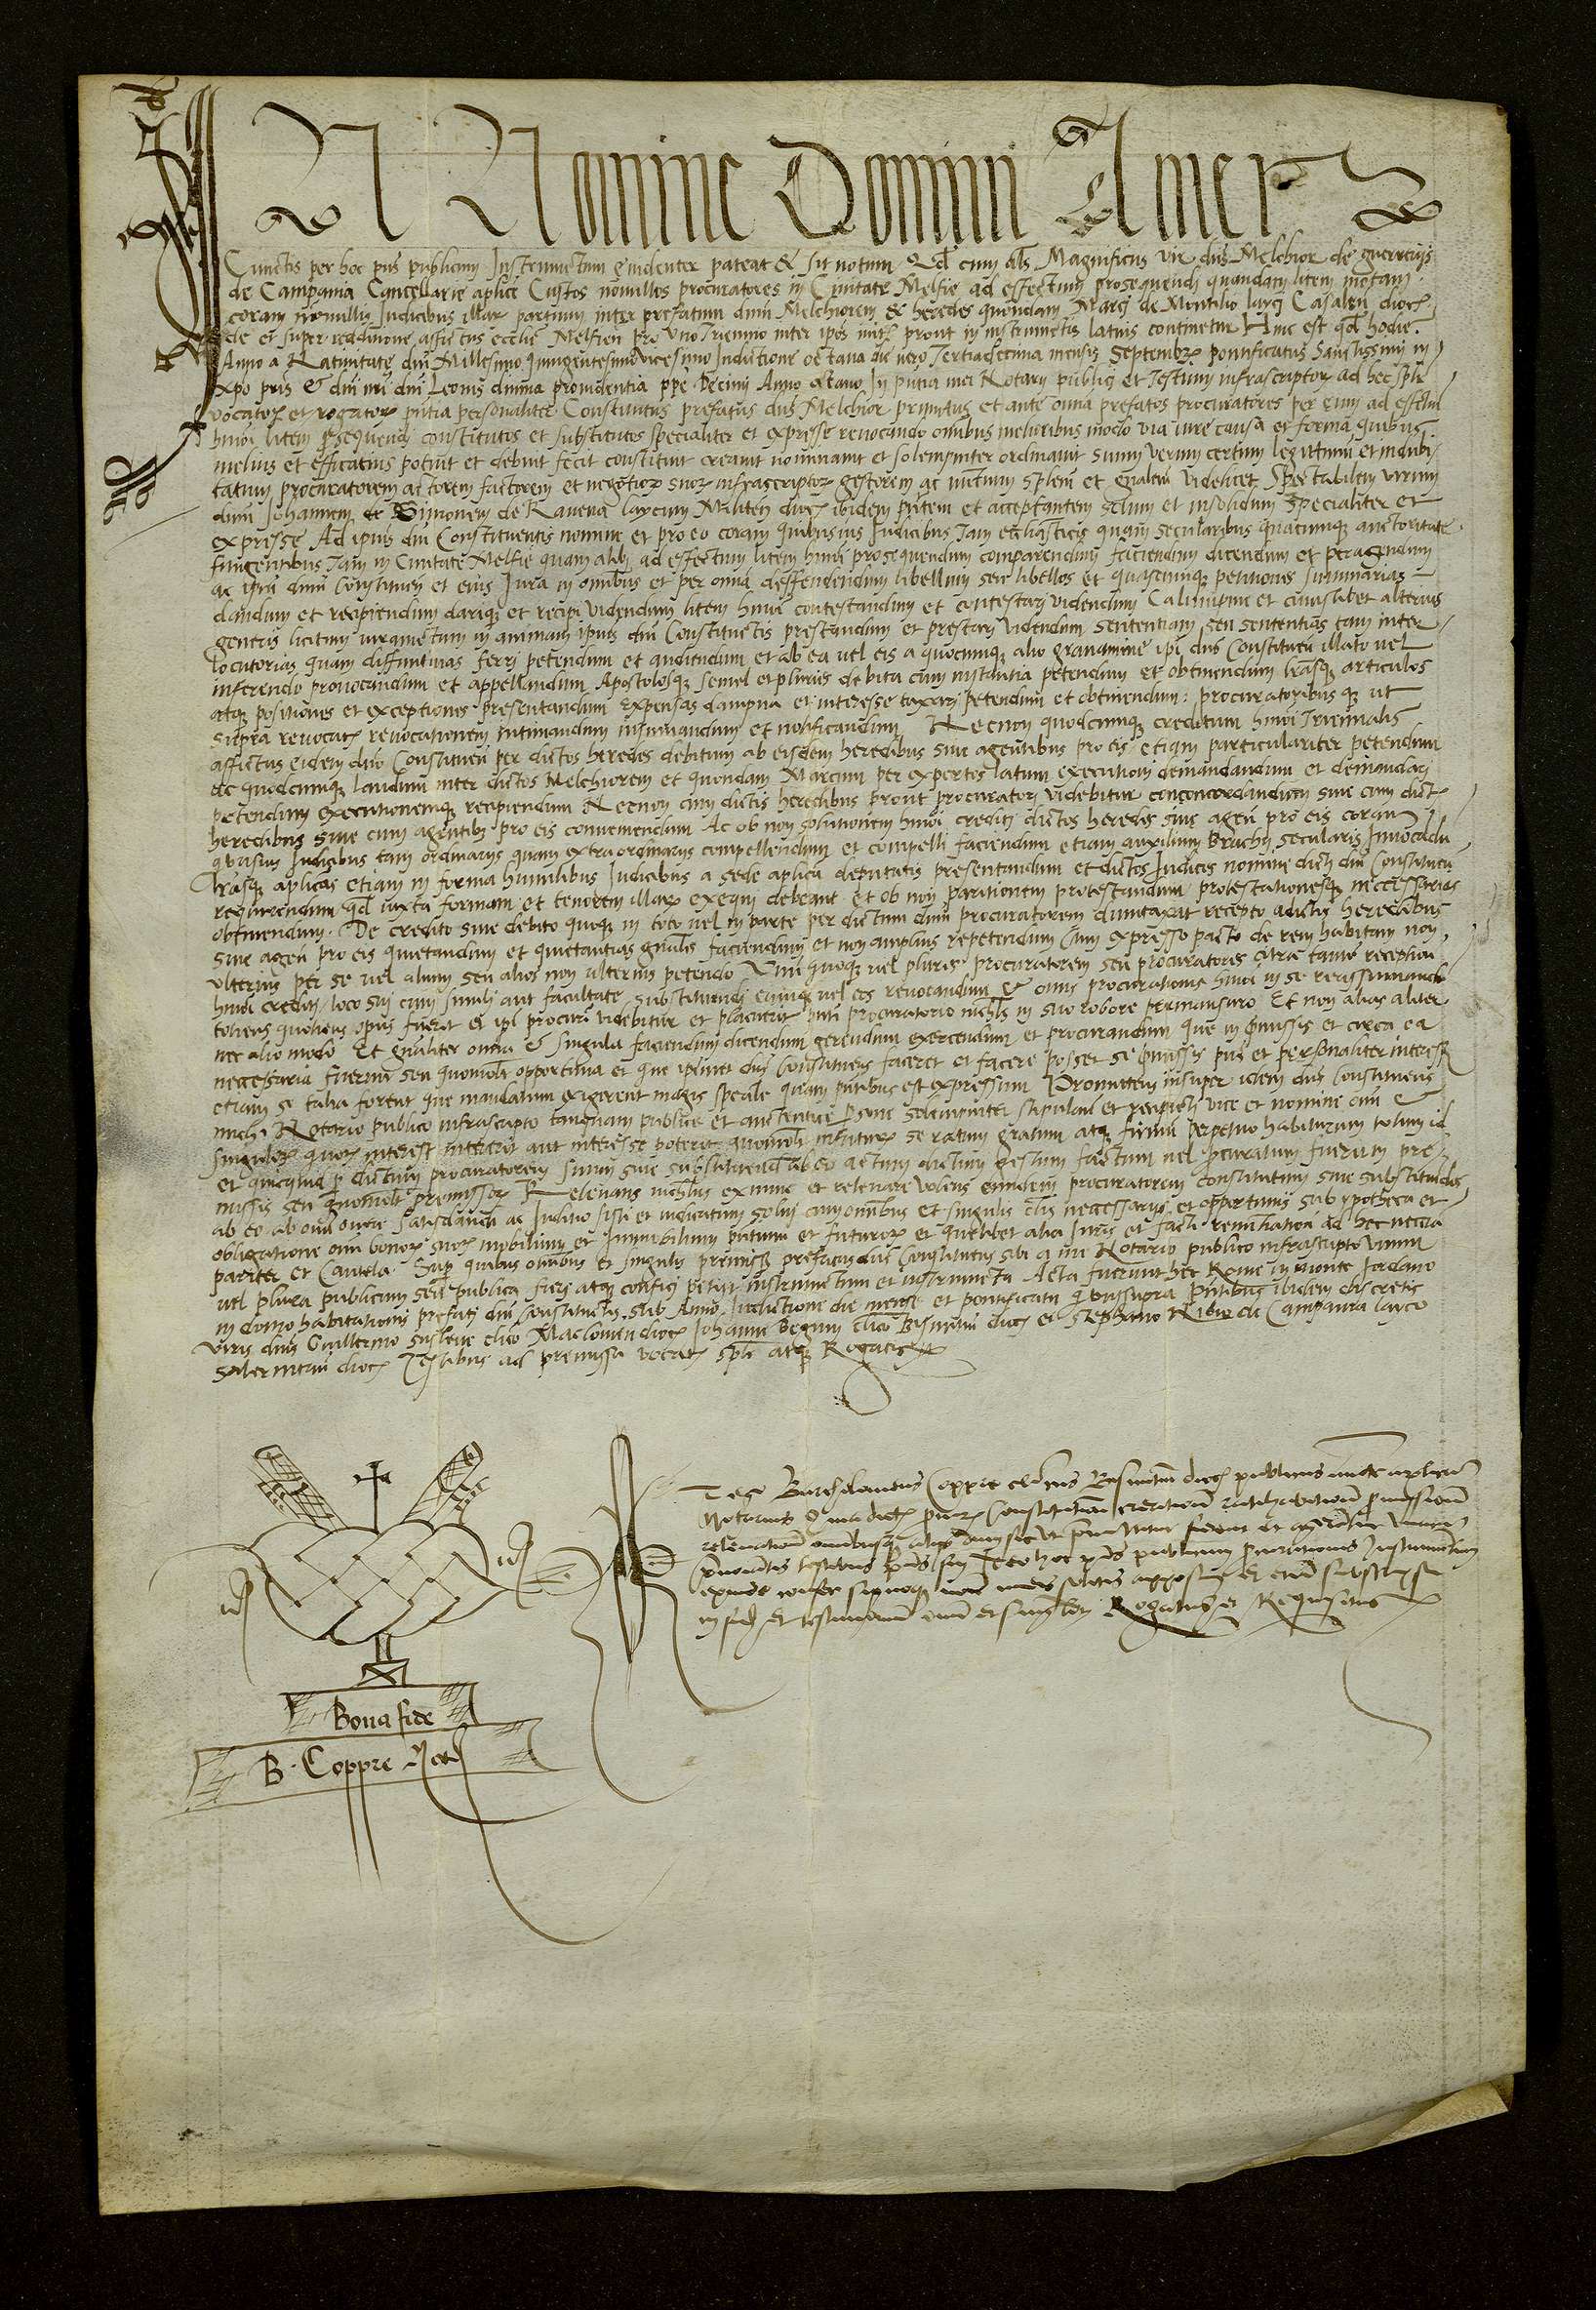 IN Nomine Domini Amen
Cunctis per hoc pns publicum Instrumentum euidenter pateat & sit notum Qd cum als Magnificus vir dns Melchior de guerrerijs
de Campania Cancellarie aplice Custos nonnullos procuratores in Ciuitate Melfie ad effectum prosequendi quandam litem motam
coram nonnullis Iudicibus illar partium inter prefatum dnm Melchiorem & heredes quondam Marcj de Montilio layci Casalen dioc
de et super redditione affictus ecclie Melfien pro uno Triennio inter ipos prout in instrumentis latius continetur Hinc est qd hodie
Anno a Natiuitate dni Millesimo quingentesimo vicesimo Indictione octaua die uero Tertiadecima mensis Septembr pontificatus Sanctissimi in
xpo pris & dni nri dni Leonis diuina prouidentia ppe Decimi Anno octauo In pntia mei Notarij publicj et Testium infrascriptor ad hec spli
vocator et rogator pntia personaliter Constitutus prefatus dns Melchior primitus et ante omnia prefatos procuratores per eum ad effectum
hmoi litem prosequendj constitutos et substitutos specialiter et expresse reuocando omnibus melioribus modo via iure causa et forma quibus
melius et efficatius potuit et debuit fecit constituit creauit nominauit et solempniter ordinauit suum verum certum legittimum et indubi
tatum procuratorem actorem factorem et negotior suor infrascriptor gestorem ac nuntium splem et gnalem videlicet Spectabilem virum
dnm Iohannem de Simonem de Rauena laycum Militen dioc ibidem pntem et acceptantem solum et insolidum Specialiter et
expresse Ad ipius dni Constituentis nomine et pro eo coram quibusuis Iudicibus Tam ecclesiasticis quam secularibus quacumque auctoritate
fungentibus Tam in Ciuitate Melfie quam alibj ad effectum litem hmoi prosequendum comparendum faciendum dicendum et peragendum
ac ipm dnm Constituen et eius Iura in omnibus et per omnia deffendendum libellum seu libellos et quascumque petitiones summarias
dandum et recipiendum darique et recipi videndum litem hmoi contestandum et contestarj videndum Calumpnie et cuiuslibet alterius
generis licitum iuramentum in animam ipius dni Constituentis prestandum et prestarj videndum sententiam seu sententias tam inter
locutorias quam diffinitiuas ferrj petendum et audiendum et ab ea uel eis a quocumque alio grauamine ipi dno Constituen illato uel
inferendo prouocandum et appellandum Apostolosque semel et pluries debita cum instantia petendum et obtinendum lrasque articulos
atque positiones et exceptiones presentandum Expensas dampna et interesse taxarj petendum et obtinendum: procuratoribusque ut
supra reuocatis reuocationem intimandum insinuandum et notificandum Necnon quodcumque creditum hmoi Triennalis
affictus eidem dno Constituen per dictos heredes debitum ab eisdem heredibus siue agentibus pro eis etiam particulariter petendum
ac quodcumque laudum inter dictos Melchiorem et quondam Marcum per expertos latum executioni demandandum et demandarj
petendum executionemque recipiendum Necnon cum dictis heredibus prout procuratorj videbitur concordandum siue cum dict
heredibus siue cum agentibus pro eis conueniendum Ac ob non solutionem hmoi creditj dictos heredes siue agen pro eis coram
quibusuis Iudicibus tam ordinarijs quam extraordinarijs compellendum et compelli faciendum etiam auxilium Brachij secularis Inuocadu
lrasque aplicas etiam in forma humilibus Iudicibus a sede aplica deputatis presentandum et dictos Iudices nomine dicti dni Constituen
requirendum qd iuxta formam et tenorem illar exequj debeant et ob non paritionem protestandum protestationesque necessarias
obtinendum. De credito siue debito quoque in toto uel in parte per dictum dnm procuratorem dumtaxat recepto a dictis heredibus
siue agen pro eis quietandum et quietantias gnales faciendum et non amplius repetendum Cum expresso pacto de rem habitam non
vlterius per se uel alium seu alios non vlterius petendo Vnum quoque uel plures procuratorem seu procuratores citra tamen reception
hmoi creditj loco sui cum simili aut facultate substituendj eumque uel eos reuocandum & onus procurationis hmoi in se reassumendi
totiens quotiens opus fuerit et ipi procurj videbitur et placuerit pnti procuratorio nichilominus in suo robore permansuro Et non alias aliter
nec alio modo Et gnaliter omnia & singula faciendum dicendum gerendum exercendum et procurandum que in pmissis et circa ea
necessaria fuerint seu quomolt opportuna et que ipsemet dns Constituens faceret et facere posset se pmissis pns et personaliter interesset
etiam si talia forent que mandatum exigerent magis speale quam pntibus est expressum Promittens insuper idem dns Constituens
mich Notario publico infrascripto tanquam publice et auctentice psone solempniter stipulan et recipien vice et nomine omn &
singulor quor interest intererit aut interesse poterit quomolt infuturum se ratum gratum atque firmum perpetuo habiturum totum id
et quicquid p dictum procuratorem suum siue substituendu ab eo actum dictum gestum factum uel pcuratum fuerit in pre
missis seu quomolt premissor Releuans nichilominus exnunc et releuare volens eumdem procuratorem constitutum siue substituendos
ab eo ab omni onere satisdandi ac Iuditio sisti et iudicatum solui cum omnibus et singulis clis necessarijs et opportunis sub ypotheca et
obligatione omn bonor suor mobilium et Immobilium pntium et futuror et qualibet alia Iuris et facti renuntiation ad hec necia
pariter et Cautela. Sup quibus omnibus et singulis premissis prefatus dns Constituens sibi a me Notario publico infrascripto vnum
uel plura publicum seu publica fierj atque conficj petijt instrumentum et instrumenta Acta fuerunt hec Rome in monte Iordano
in domo habitationis prefatj dni Constituentis Sub Anno Indictione die mense et pontificatu quibus supra pntibus ibidem discretis
viris dnis Guillermo clico Maclouien dioc Iohanne Beguin clico Bisuntin dioc et Stephano de Campania layco
Salernitan dioc Testibus ad premissa vocatis spli atque Rogatis
Et Ego Bartholomeus Coppre clericus Bisuntin dioc publicus aplica
Notarius Quia dict procur Constitutioni creationi ratihabitioni pmissioni
releuationi omnibusque alijs dum sic ut pmittitur fierent et agerentur vnacum
pnominatis testibus pns fui Ideo hoc pns publicum procurationis Instrumentum
exinde confeci signoque meis solitis apposui et subscripsi
in fidem et testimonium omn et singulor Rogatus et Requisitus
Bona fide
B. Coppre Not